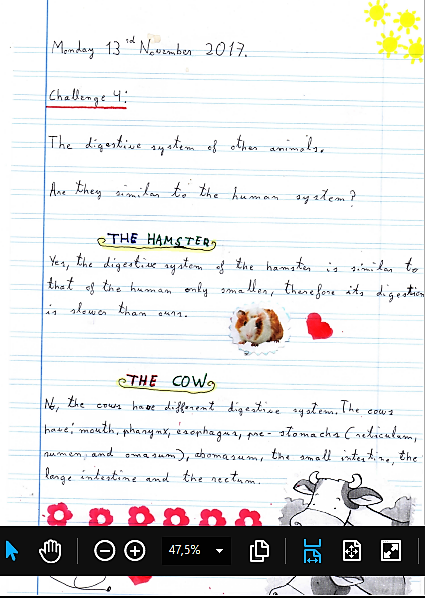 Monday 13rd November 2017.
Challenge 4:
The digestive system of other animals.
Are they similar to the human system?
THE HAMSTER
Yes, the digestive system of the hamster is similar to
that of the human only smaller, therefore its digestion
is slower than ours.
THE COW
No, the cows have different digestive system. The cows
have: mouth, pharynx, esophagus, pre-stomachs (reticulum,
rumen, and omasum), abomasum, the small intestine, the
large intestine and the rectum.
47,5%